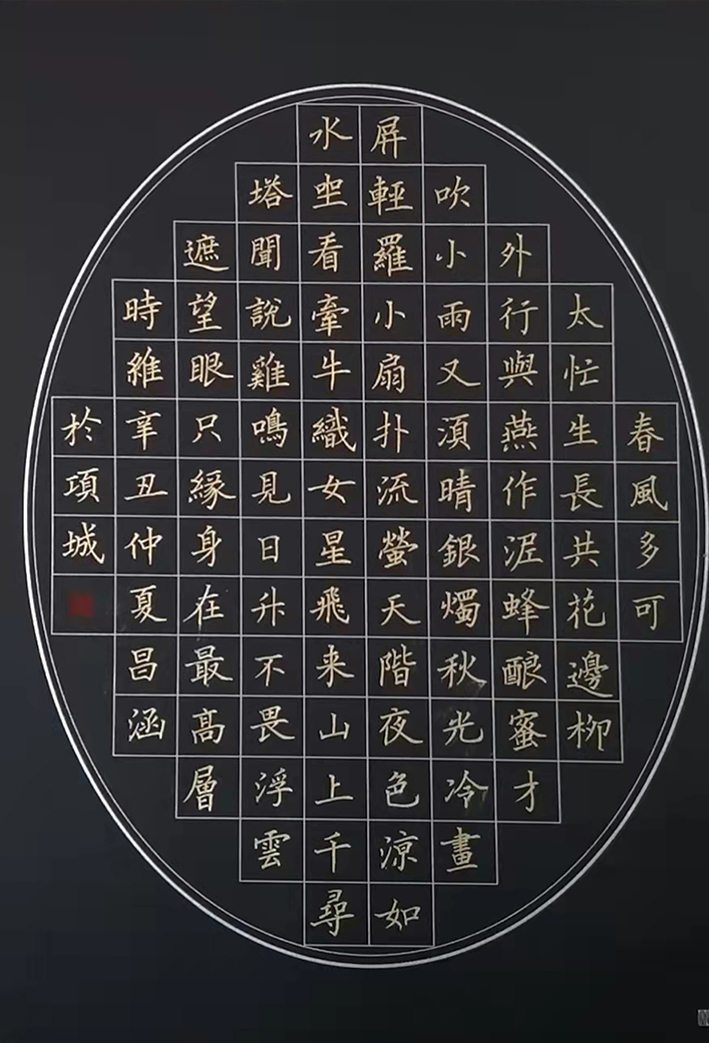 春風多可
太忙生長共花邊柳
外行與燕作泥蜂酿蜜才
吹小雨又湏晴銀燭秋光冷畫
屏輕羅小扇扑流螢天階夜色涼如
水坐看牽牛織女星飛来山上千尋
塔聞說雞鳴見日升不畏浮雲
遮望眼只緣身在最高層
時維辛丑仲夏昌涵
於項城